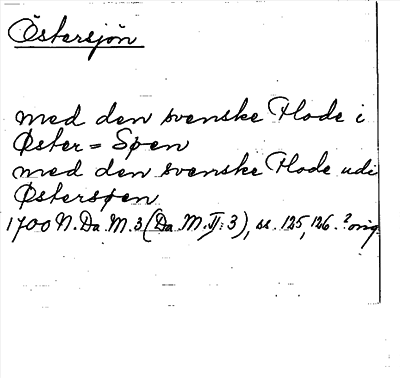 Östersjön
med den svenske Flode i
Øster = Søen
med den svenske Flode udi
Østersøen
1700 N. Da. M. 3 (Da. M. II: 3), ss. 125, 126. ? orig